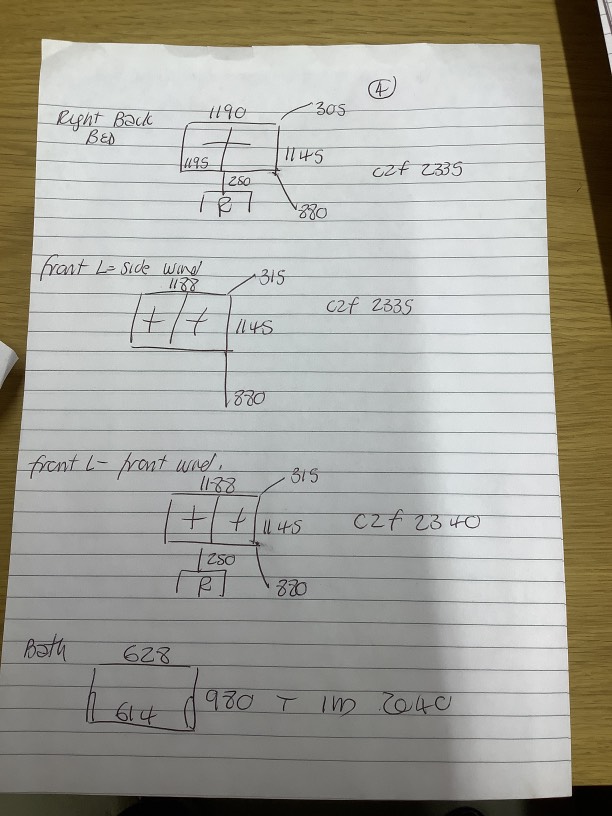 4
Right Back
BED
1190
305
1195
1145
c2f 2335
250
R
880
front L- side wind
1188
315
c2f 2335
1145
880
front L- front wind.
1188
315
1145
c2f 2340
250
R
880
Bath
628
614
980 T IN 2040